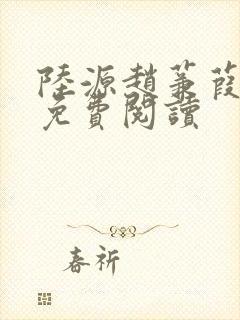 陸源趙蒹葭
免費閱讀
春祈